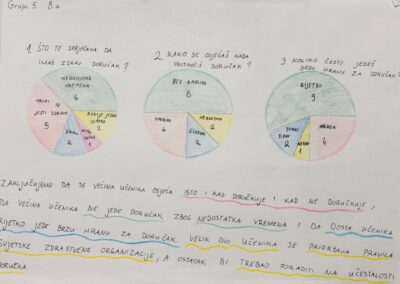 Grupa 5 8.a
1. ŠTO TE SPRJEČAVA DA
IMAŠ ZDRAV DORUČAK?
2. KAKO SE OSJEĆAŠ KADA
PRESKOČIŠ DORUČAK?
3. KOLIKO ČESTO JEDEŠ
BRZU HRANU ZA DORUČAK?
NEDOSTATAK
VREMENA
6
JESTI ZDRAVO
5
2
2
1
BEZ
8
UMORNO
4
GLADNO
2
NERVOZNO
2
RIJETKO
9
SVAKI
DAN
2
1
NIKADA
4
ZAKLJUČUJEMO DA SE VEĆINA UČENIKA OSJEĆA ISTO I KAD DORUČKUJE I KAD NE DORUČKUJE,
DA VEĆINA UČENIKA NE JEDE DORUČAK ZBOG NEDOSTATKA VREMENA I DA DOSTA UČENIKA
RIJETKO JEDE BRZU HRANU ZA DORUČAK. VELIK DIO UČENIKA SE PRIDRŽAVA PRAVILA
SVJETSKE ZDRASTVENE ORGANIZACIJE, A OSTATAK BI TREBAO PORADITI NA UČESTALOSTI
DORUČKA.